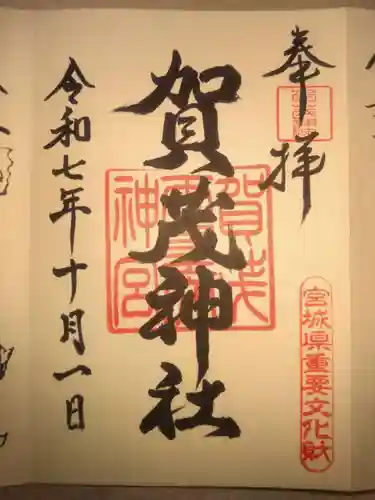 奉拝
賀茂神社
宮城県重要文化財
令和七年十月一日